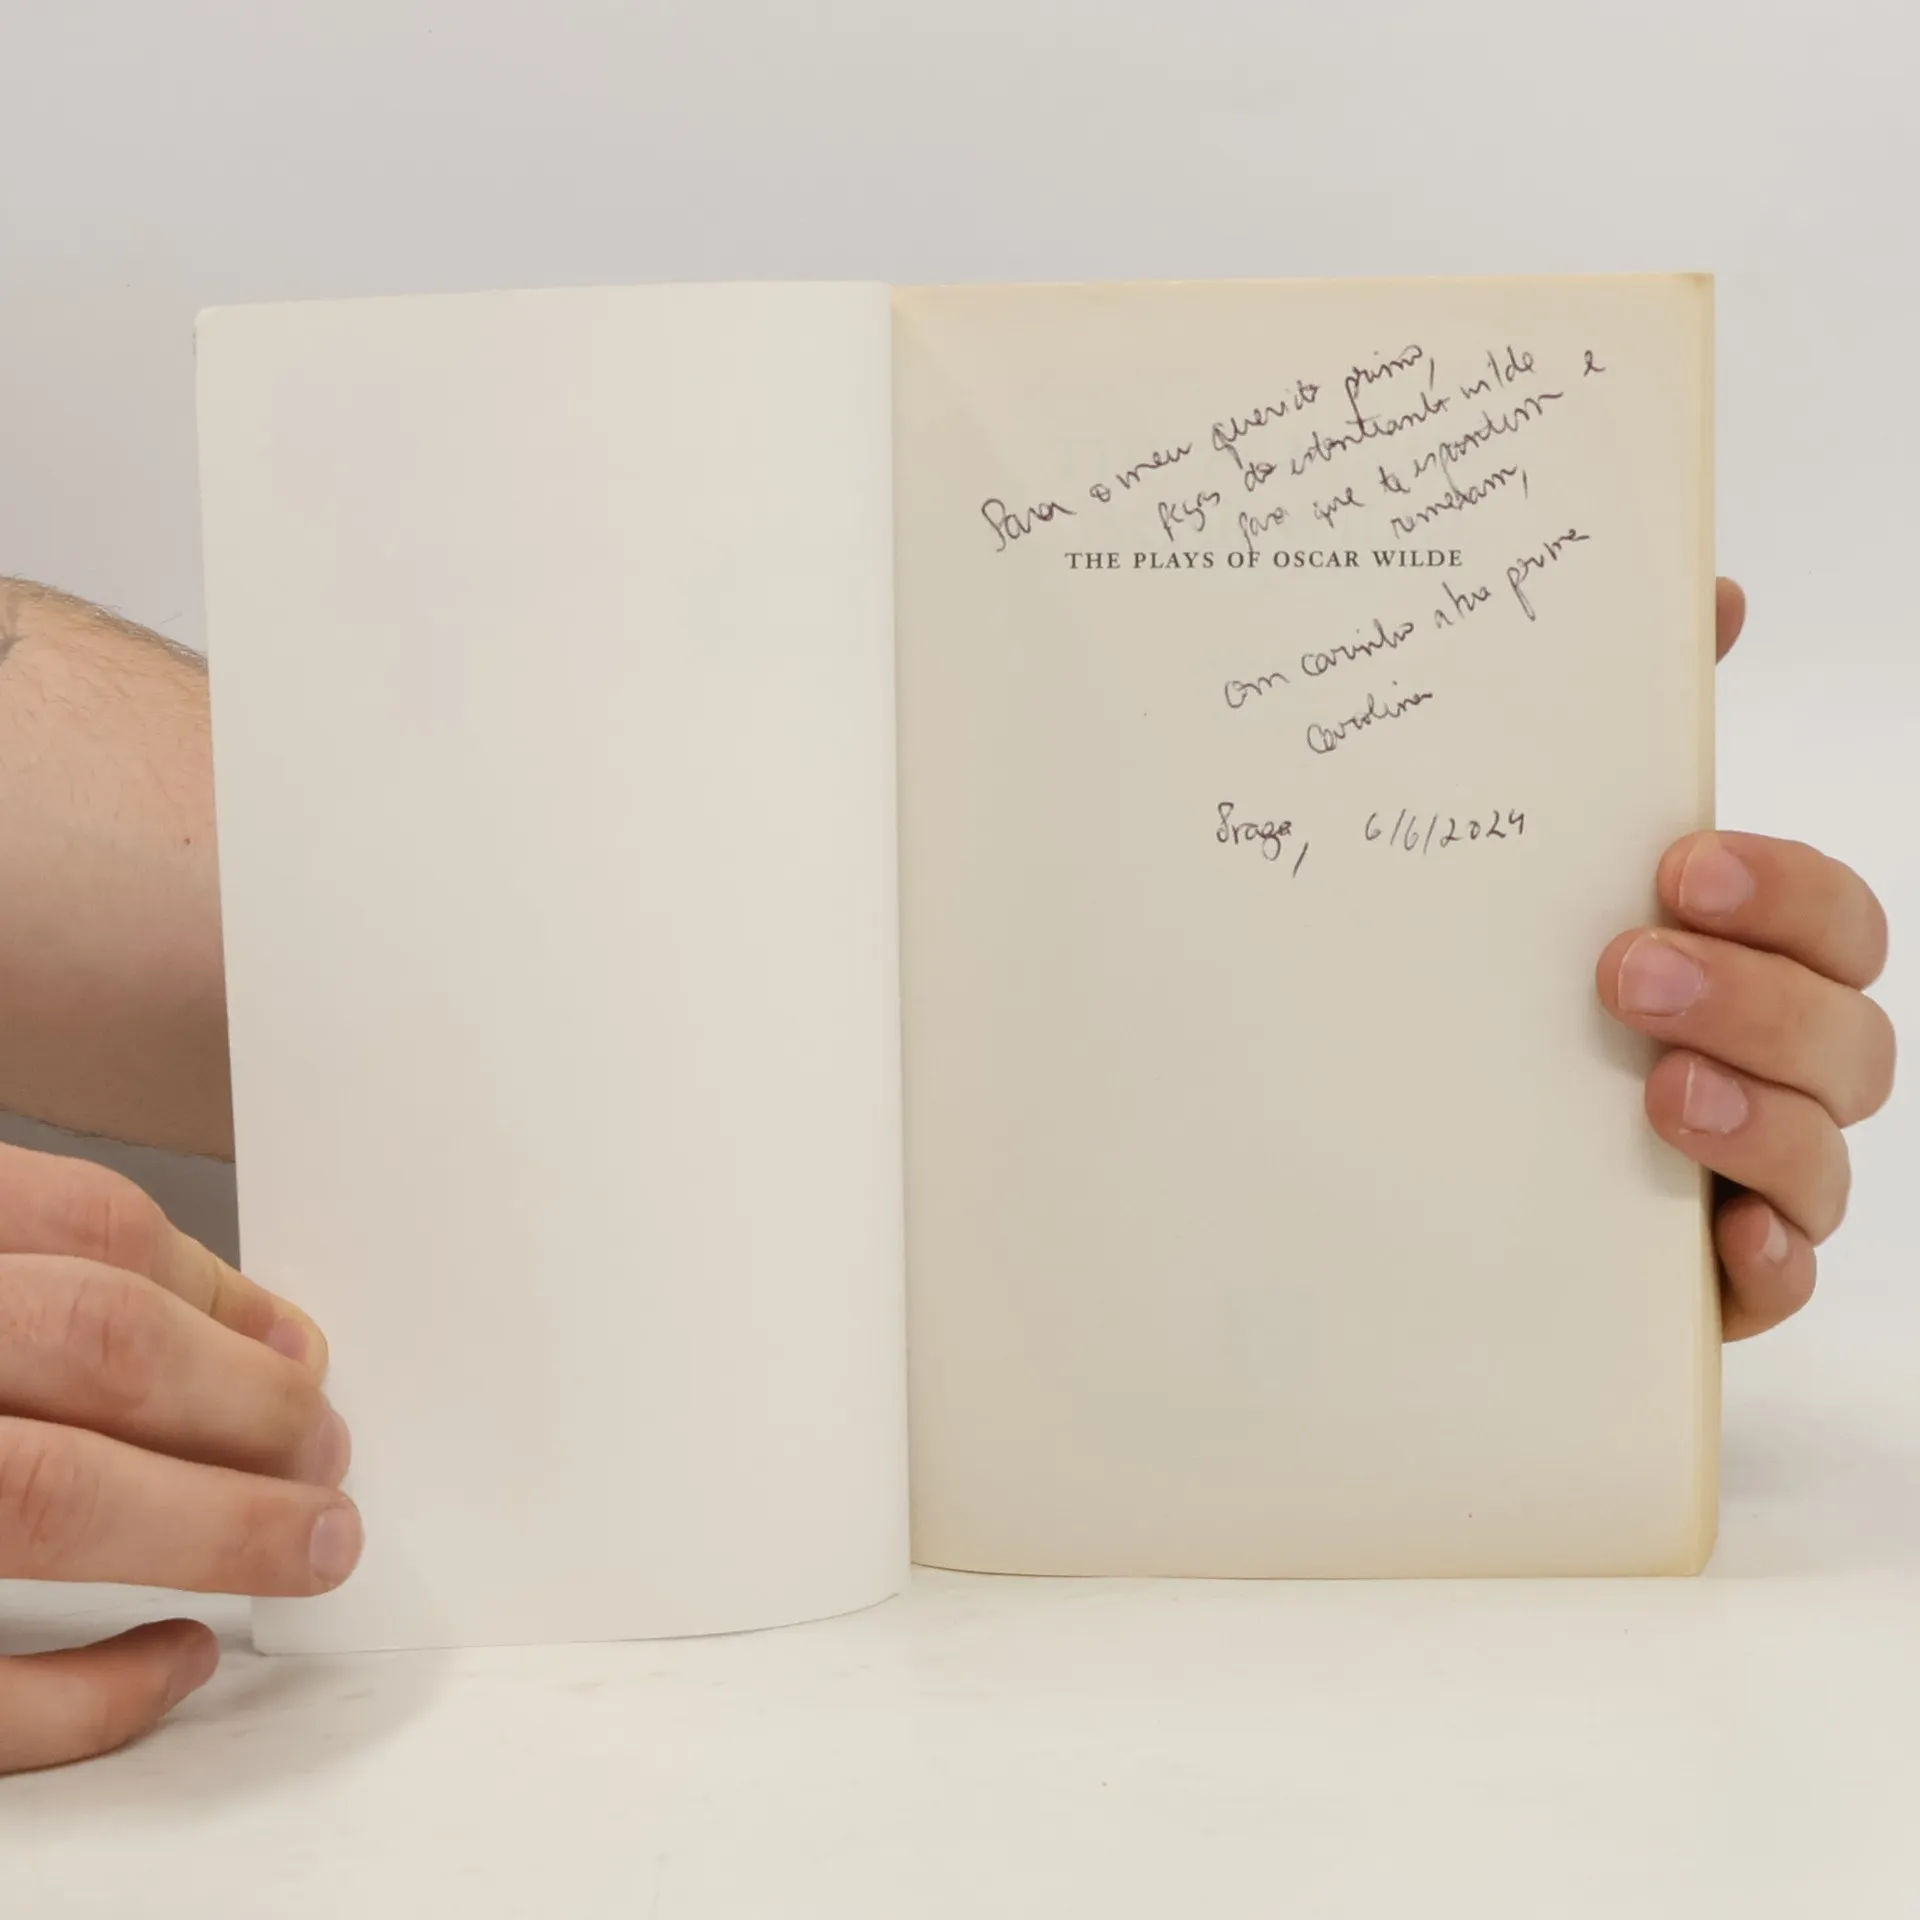 Para o meu querido primo,
peças do extravagante wilde
para que te inspirem e
THE PLAYS OF OSCAR WILDE
com carinho a tua prima
Carolina
Praga, 6/6/2024